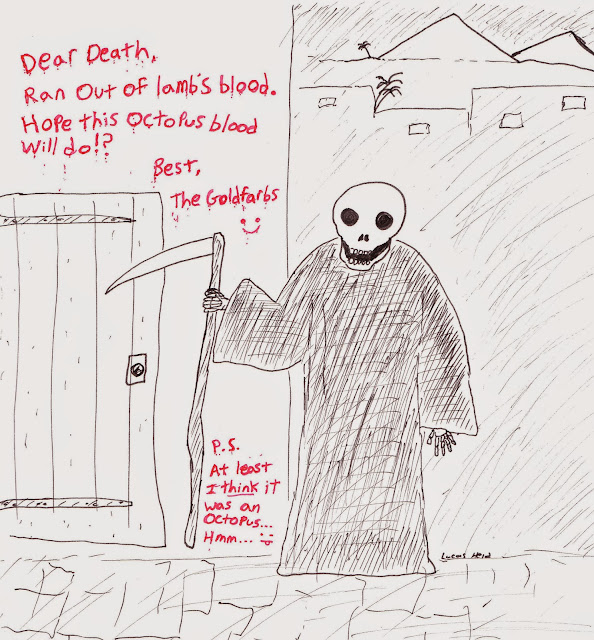 Dear Death,
Ran Out of lamb's blood.
Hope this Octopus blood
Will do!?
Best,
The Goldfarbs
P.S.
At least
I think it
was an
Octopus...
Hmm...
Lucas Held